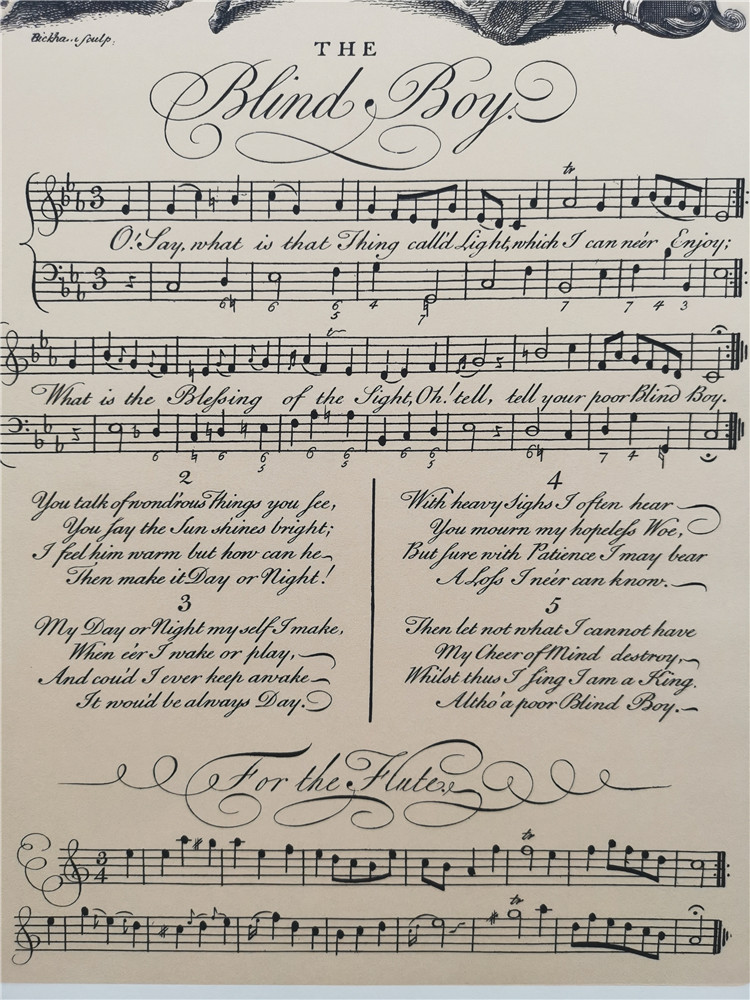 Bickham sculp:
THE
Blind Boy.
O! Say, what is that Thing call'd Light, which I can ne'er Enjoy;
What is the Blessing of the Sight, Oh! tell, tell your poor Blind Boy.
2
You talk of wond'rous Things you see,
You say the Sun shines bright;
I feel him warm but how can he
Then make it Day or Night!
3
My Day or Night my self I make,
When e'er I wake or play,
And cou'd I ever keep awake
It wou'd be always Day.
4
With heavy sighs I often hear
You mourn my hopeless Woe,
But sure with Patience I may bear
A Loss I ne'er can know.
5
Then let not what I cannot have
My Cheer of Mind destroy,
Whilst thus I sing I am a King.
Altho' a poor Blind Boy.
For the Flute.